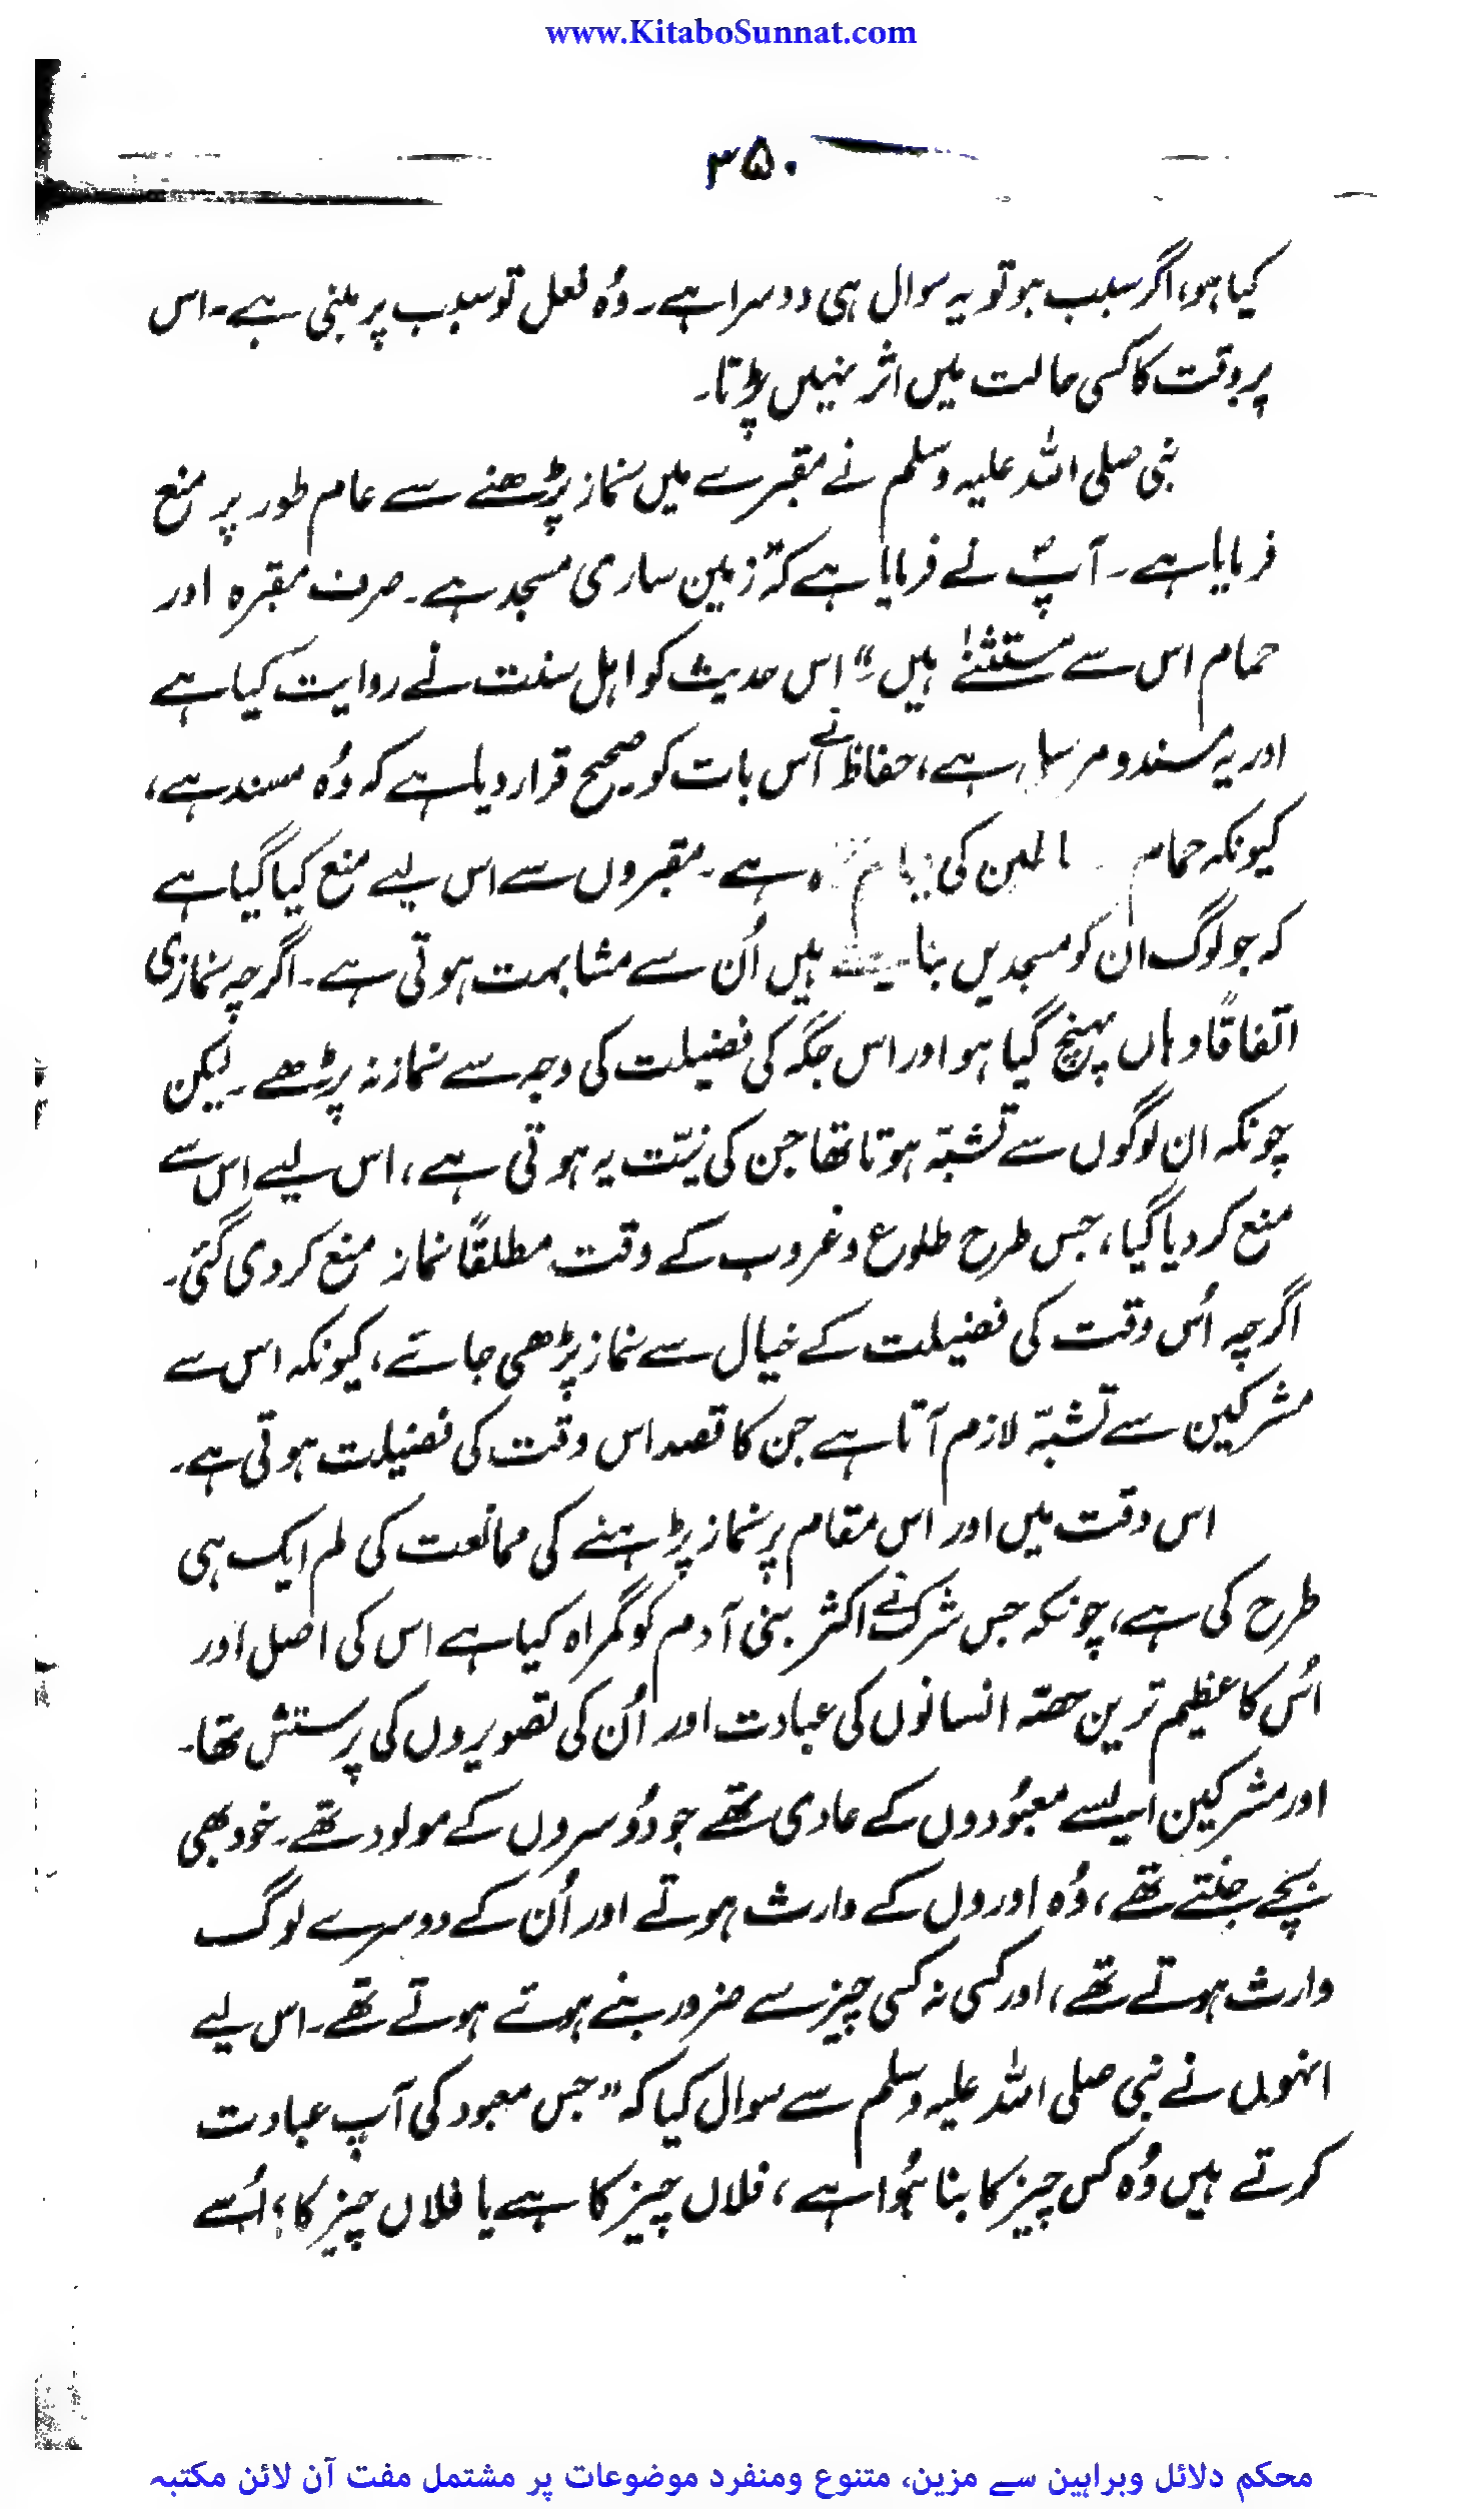 www.KitaboSunnat.com
۳۵۰
کیا ہو، اگر سبب ہو تو یہ سوال ہی دوسرا ہے۔ وُہ فعل تو سبب پر مبنی ہے۔ اس
پر وقت کا کسی حالت میں اثر نہیں پڑتا۔
نبی صلی اللہ علیہ وسلم نے مقبرے میں نماز پڑھنے سے عام طور پر منع
فرمایا ہے۔ آپؐ نے فرمایا ہے کہ "زمین ساری مسجد ہے۔ صرف مقبرہ اور
حمام اس سے مستثنےٰ ہیں"۔ اس حدیث کو اہل سنت نے روایت کیا ہے
اور یہ مسند و مرسل ہے، حفاظ نے اس بات کو صحیح قرار دیا ہے کہ وُہ مسند ہے،
کیونکہ حمام کی ہے۔ مقبروں سے اس لیے منع کیا گیا ہے
کہ جو لوگ ان کو مسجدیں بناتے ہیں اُن سے مشابہت ہوتی ہے۔ اگرچہ نمازی
اتفاقًا وہاں پہنچ گیا ہو اور اس جگہ کی فضیلت کی وجہ سے نماز نہ پڑھے۔ لیکن
چونکہ ان لوگوں سے تشبّہ ہوتا تھا جن کی نیّت یہ ہوتی ہے، اس لیے اس سے
منع کر دیا گیا، جس طرح طلوع و غروب کے وقت مطلقًا نماز منع کر دی گئی۔
اگرچہ اُس وقت کی فضیلت کے خیال سے نماز پڑھی جائے، کیونکہ اس سے
مشرکین سے تشبّہ لازم آتا ہے جن کا قصد اس وقت کی فضیلت ہوتی ہے۔
اس وقت میں اور اس مقام پر نماز پڑہنے کی ممانعت کی لم ایک ہی
طرح کی ہے، چونکہ جس شرک نے اکثر بنی آدم کو گمراہ کیا ہے اس کی اصل اور
اُس کا عظیم ترین حصّہ انسانوں کی عبادت اور اُن کی تصویروں کی پرستش تھا۔
اور مشرکین ایسے معبُودوں کے عادی تھے جو دُوسروں کے مولود تھے۔ خود بھی
بچے جنتے تھے، وُہ اوروں کے وارث ہوتے اور اُن کے دوسرے لوگ
وارث ہوتے تھے، اور کسی نہ کسی چیز سے ضرور بنے ہوتے ہوتے تھے۔ اس لیے
انہوں نے نبی صلی اللہ علیہ وسلم سے سوال کیا کہ "جس معبود کی آپ عبادت
کرتے ہیں وُہ کس چیز کا بنا ہُوا ہے، فلاں چیز کا ہے یا فلاں چیز کا؛ اُسے
محکم دلائل وبراہین سے مزین، متنوع ومنفرد موضوعات پر مشتمل مفت آن لائن مکتبہ